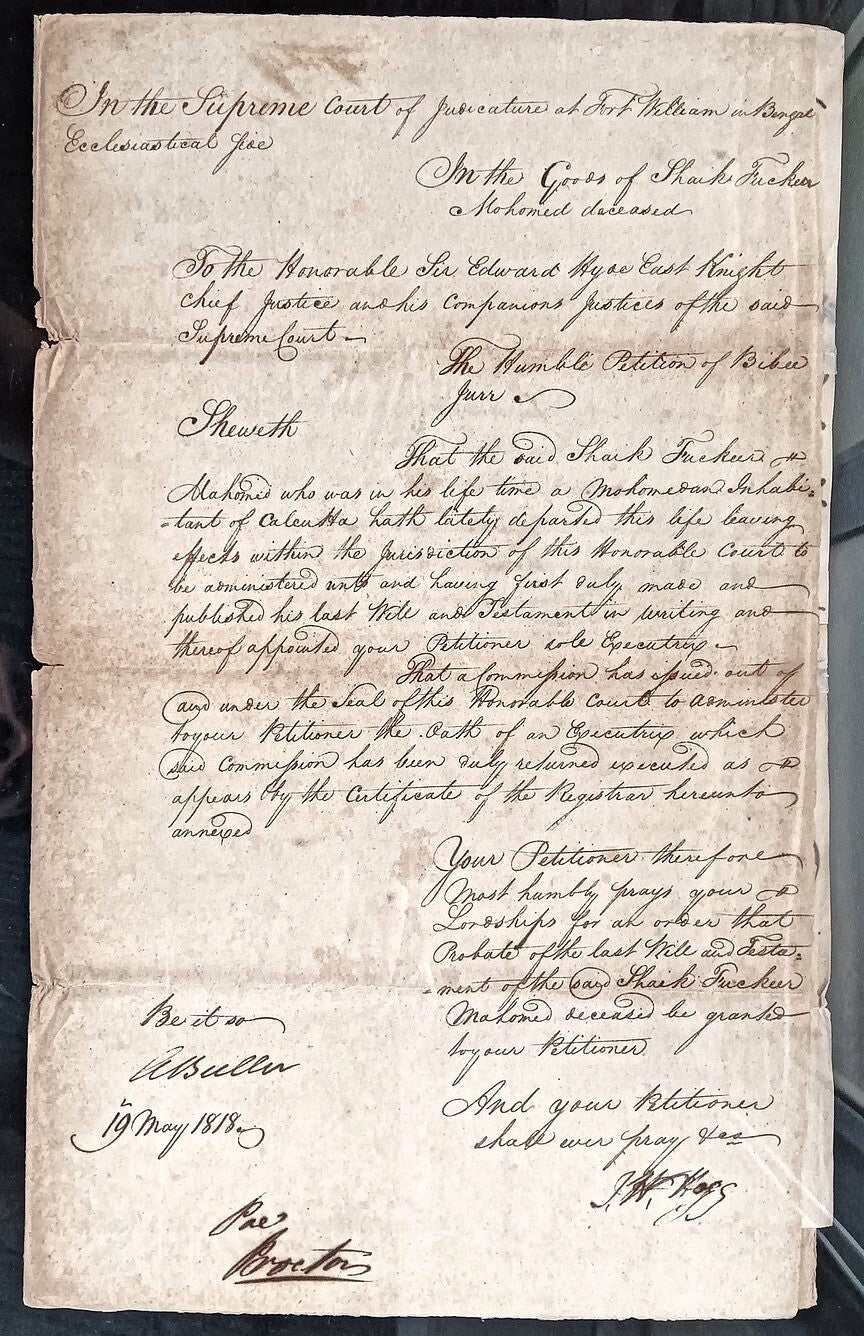 In the Supreme Court of Judicature at Fort William in Bengal
Ecclesiastical Side
In the Goods of Shaik Fuckeer
Mohomed deceased
To the Honorable Sir Edward Hyde East Knight
Chief Justice and his Companions Justices of the said
Supreme Court
The Humble Petition of Bibee
Jurr
Sheweth
That the said Shaik Fuckeer
Mahomed who was in his life time a Mohomedan Inhabi-
-tant of Calcutta hath lately departed this life leaving
effects within the Jurisdiction of this Honorable Court to
be administered unto and having first duly made and
published his last Will and Testament in writing and
thereof appointed your Petitioner sole Executrix
That a Commission has issued out of
and under the Seal of this Honorable Court to administer
to your Petitioner the Oath of an Executrix which
said Commission has been duly returned executed as
appears by the Certificate of the Registrar hereunto
annexed
Your Petitioner therefore
Most humbly prays your
Lordships for an order that
Probate of the last Will and Testa-
-ment of the said Shaik Fuckeer
Mahomed deceased be granted
to your Petitioner
And your Petitioner
shall ever pray &ca
Be it so
ABuller
19th May 1818
J. W. Hogg
Proctor